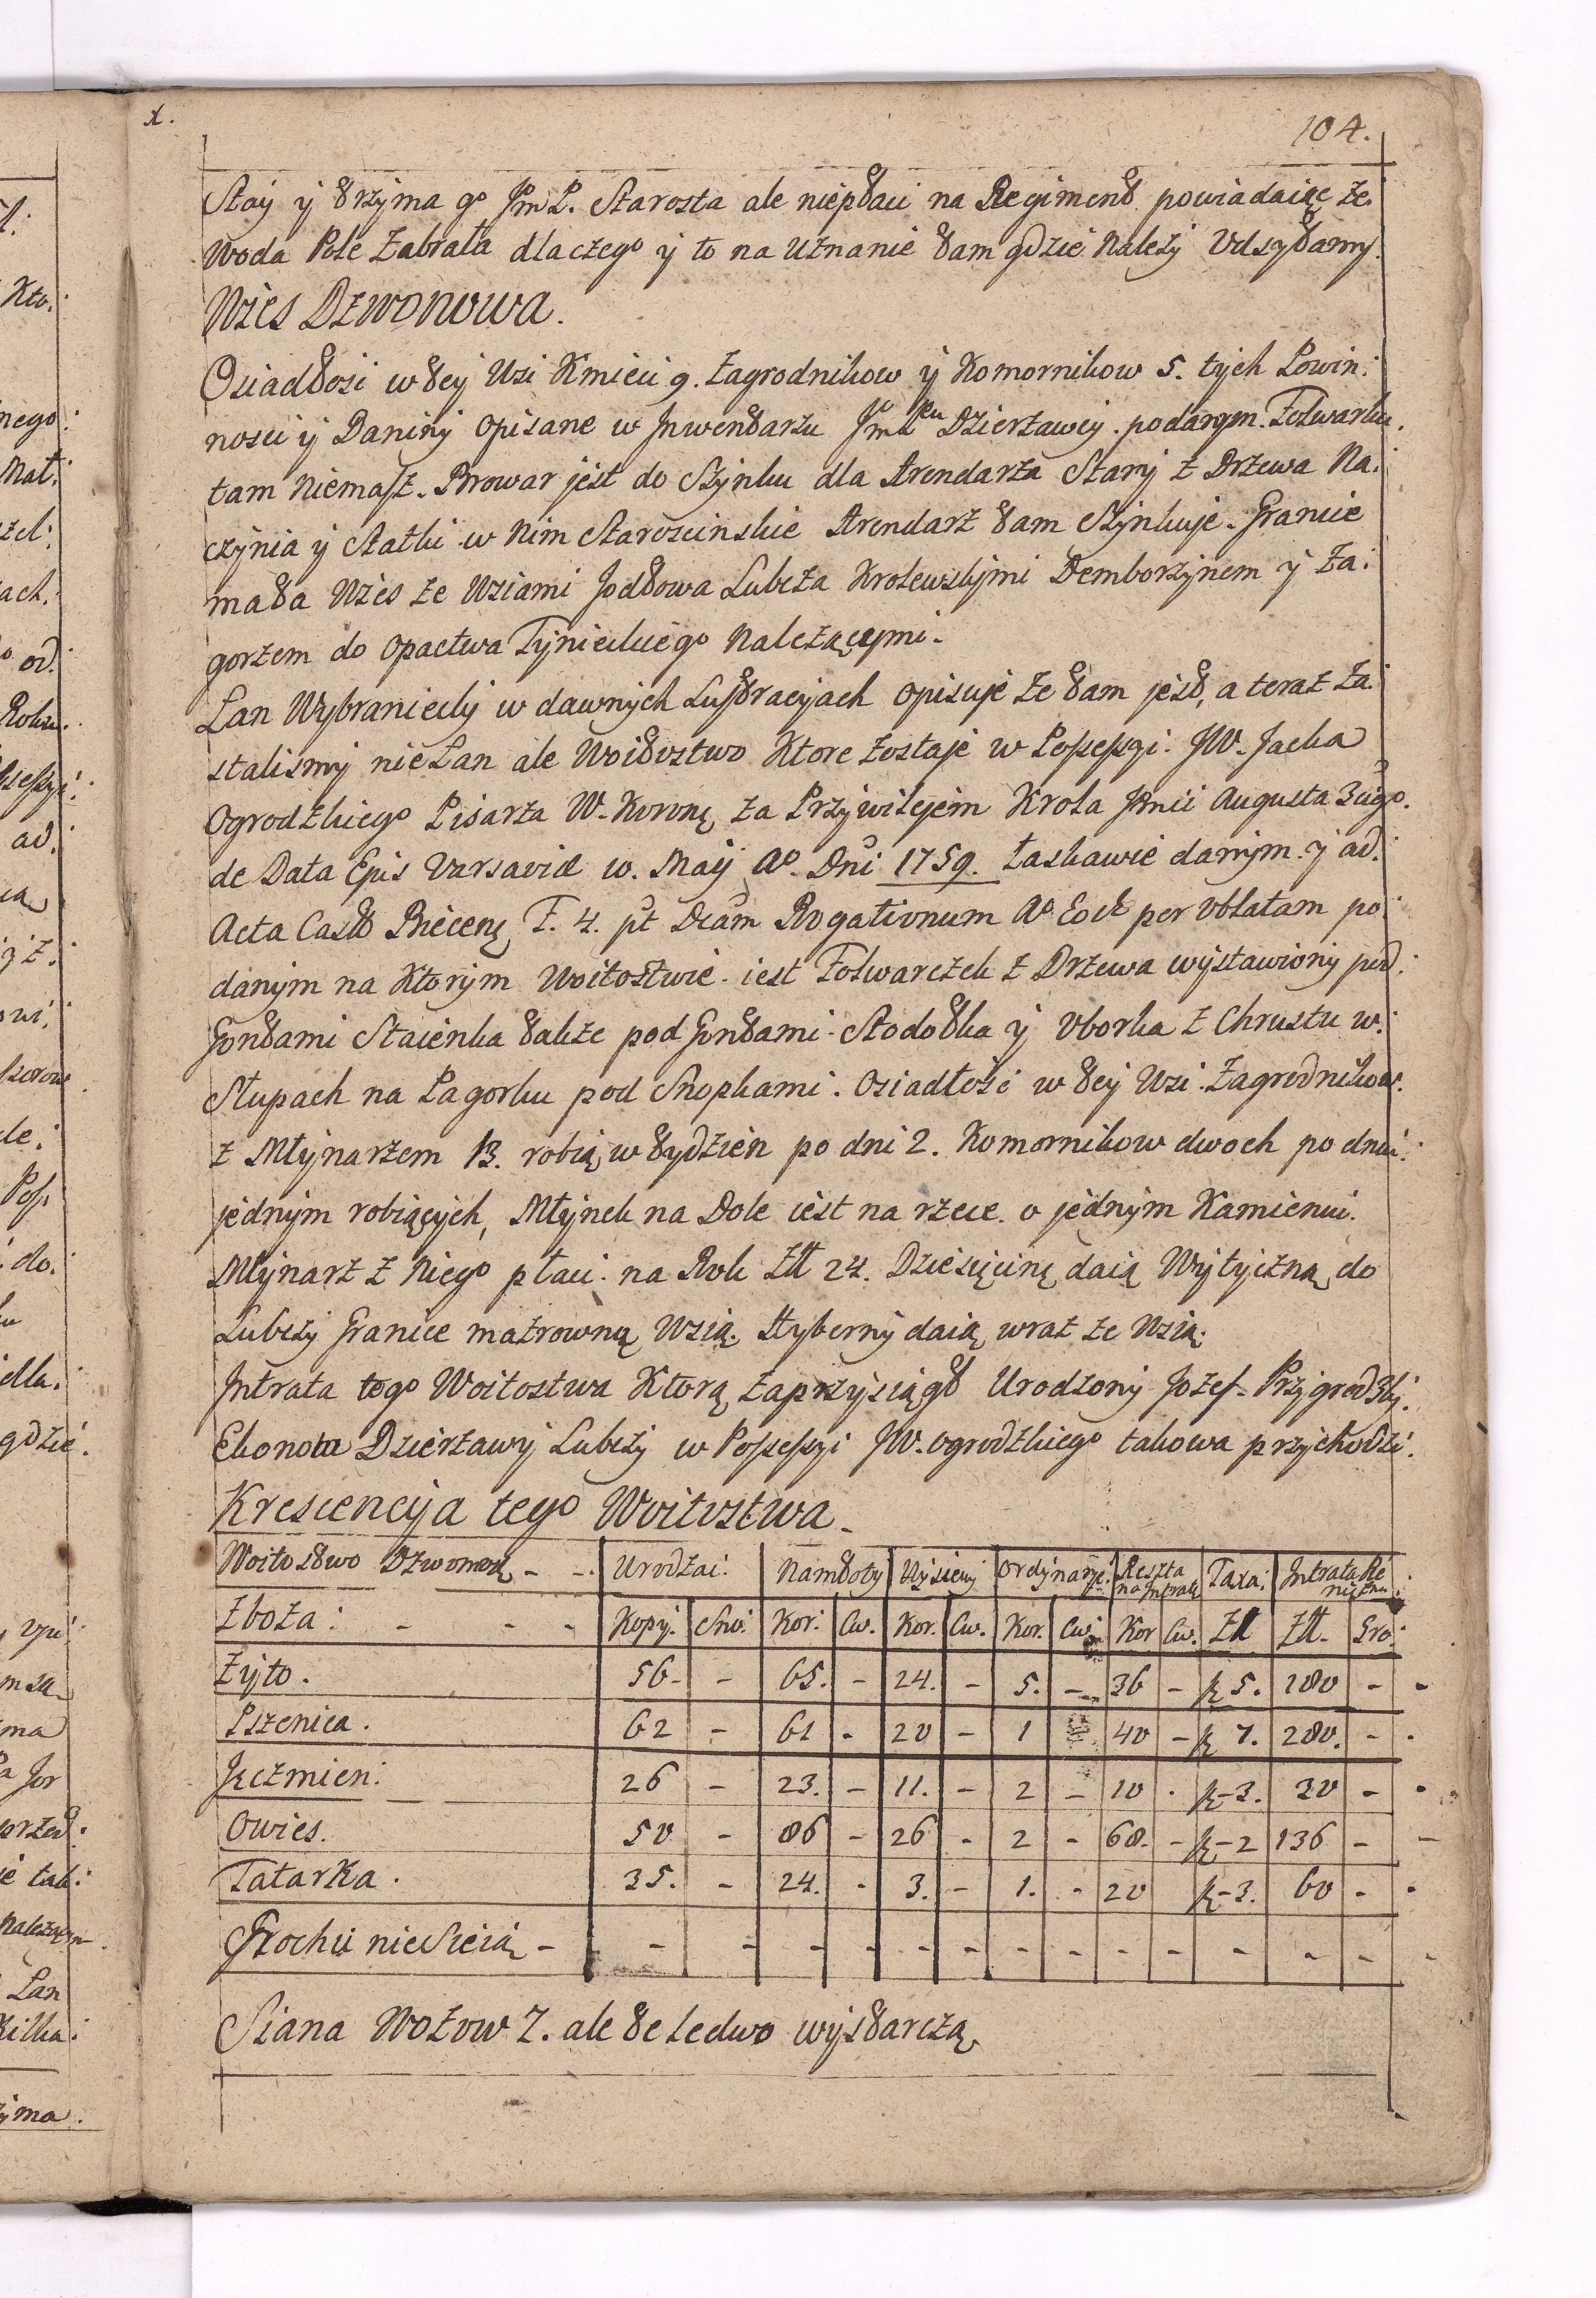 104.
Stoy y trzyma go JmP. Starosta ale niepłaci na Regiment powiadaiąc że
Woda Pole Zabrała dlaczego y to na Uznanie tam gdzie Należy Odsyłamy.
Wies Dzwonowa.
Osiadłosi w tey Wsi Kmieci 9. Zagrodnikow y Komornikow 5. tych Powin:
nosci y Daniny Opisane w Jnwentarzu Dzierżawcy. podanym. Folwarku
tam Niemasz. Browar jest do Szynku dla Arendarza Stary z Drzewa Na:
czynia y Statki w Nim Starościnskie Arendarz tam Szynkuje. Granice
mała Wies ze Wsiami Jodłowa Lubcza Krolewskymi Demborzynem y Za:
gorzem do Opactwa Tynieckiego Należącymi.
Łan Wybraniecky w dawnych Lustracyjach opisuje że tam jest, a teraz Za:
stalismy nie Łan ale Woitostwo Ktore Zostaje w Possessyi. JW. Jacka
Ogrodzkiego Pisarza W. Koronę za Przywilejem Krola Jmci Augusta 3cigo.
de Data Epis Varsaviæ 10. Maij Ao. Dni 1759. Łaskawie danym. y ad:
Acta Castr Biecenę F. 4. pt Dcam Rogationum Ao Eod per Oblatam po:
danym na Ktorym Woitostwie. iest Folwarczek z Drzewa wystawiony pod:
Gontami Staienka także pod Gontami. Stodołka y Oborka z Chrustu w:
Słupach na Pagorku pod Snopkami. Osiadłość w tey Wsi. Zagrodnikow.
z Młynarzem 13. robią w tydzien po dni 2. Komornikow dwoch po dniu:
jednym robiących, Młynek na Dole iest na rzece. o jednym Kamieniu.
Młynarz z Niego płaci. na Rok Złł 24. Dziesięcinę daią Wytyczną do
Lubczy Granice mazrowną Wsią. Hyberny daią wraz ze Wsią.
Jntrata tego Woitostwa Ktorą zaprzysiągł Urodzony Jozef. Przygrodzky.
Ekonom Dzierżawy Lubczy w Possessyi JW. Ogrodzkiego takowa przychodzi.
Krescencyja tego Woitostwa.
Woitostwo Dzwonow - -. Urodzai. Namłoty Wysiewy Ordynarye. Reszta na Jntratę Taxa. Jntrata Re niczna
Zboża: - - - Kopy. Sno. Kor: Cw. Kor. Cw. Kor. Cw. Kor Cw. Zł Złł. Gro:
Żyto. 56- - 65. - 24. - 5. - 36 - p 5. 180 - -
Pszenica. 62 - 61 - 20 - 1 40 - p 7. 280. - .
Jęczmien: 26 - 23. - 11. - 2 - 10 . p-3. 30 - .
Owies. 50 - 86 - 26 - 2 - 68. - p-2 136 - -
Tatarka. 35. - 24. - 3. - 1. - 20 p-3. 60 - .
Grochu nie Sieią - - - - - - - - - - - - - - -
Siana Wozow 7. ale te ledwo wystarczą